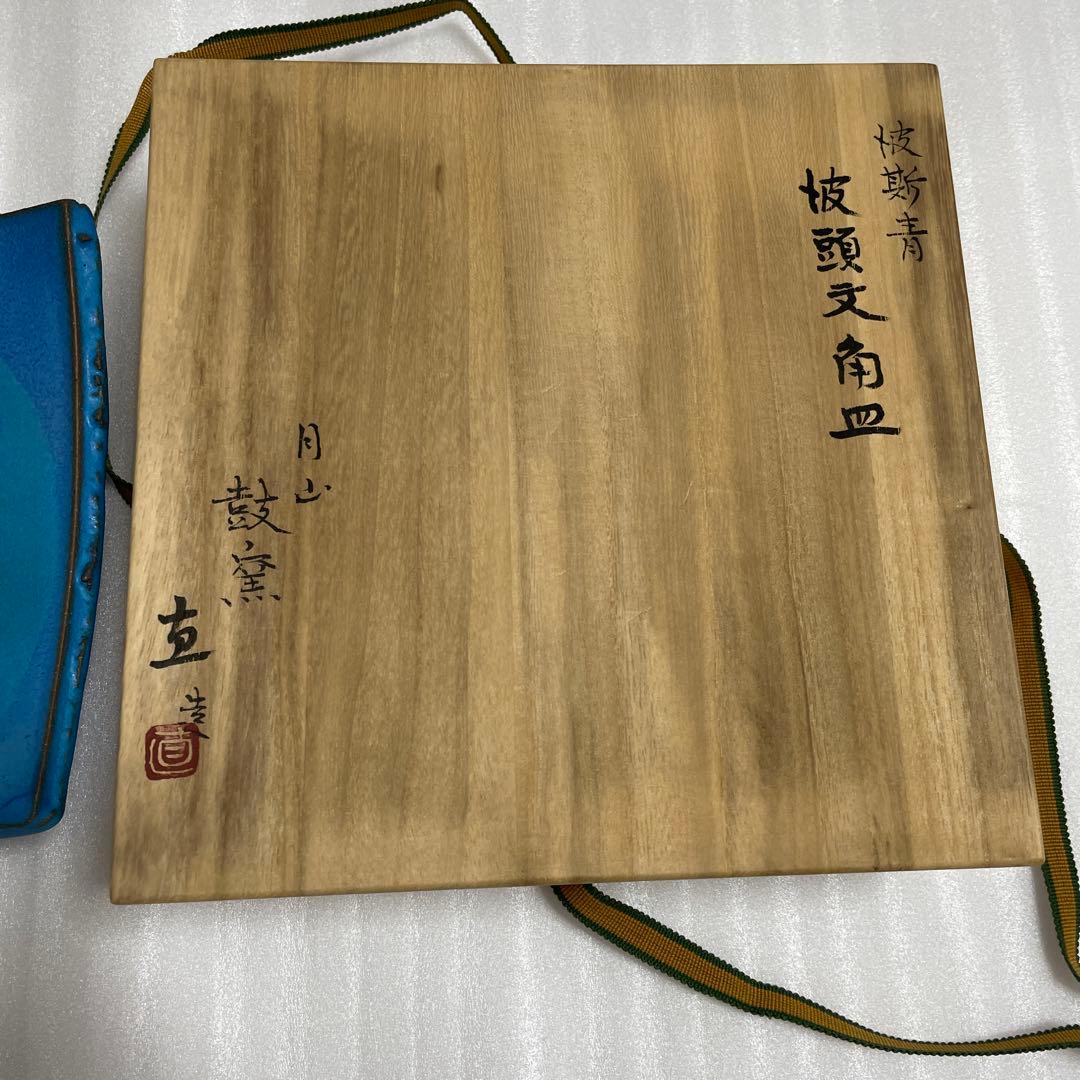 波斯青
波頭文角皿
月山
鼓窯
直
造
直